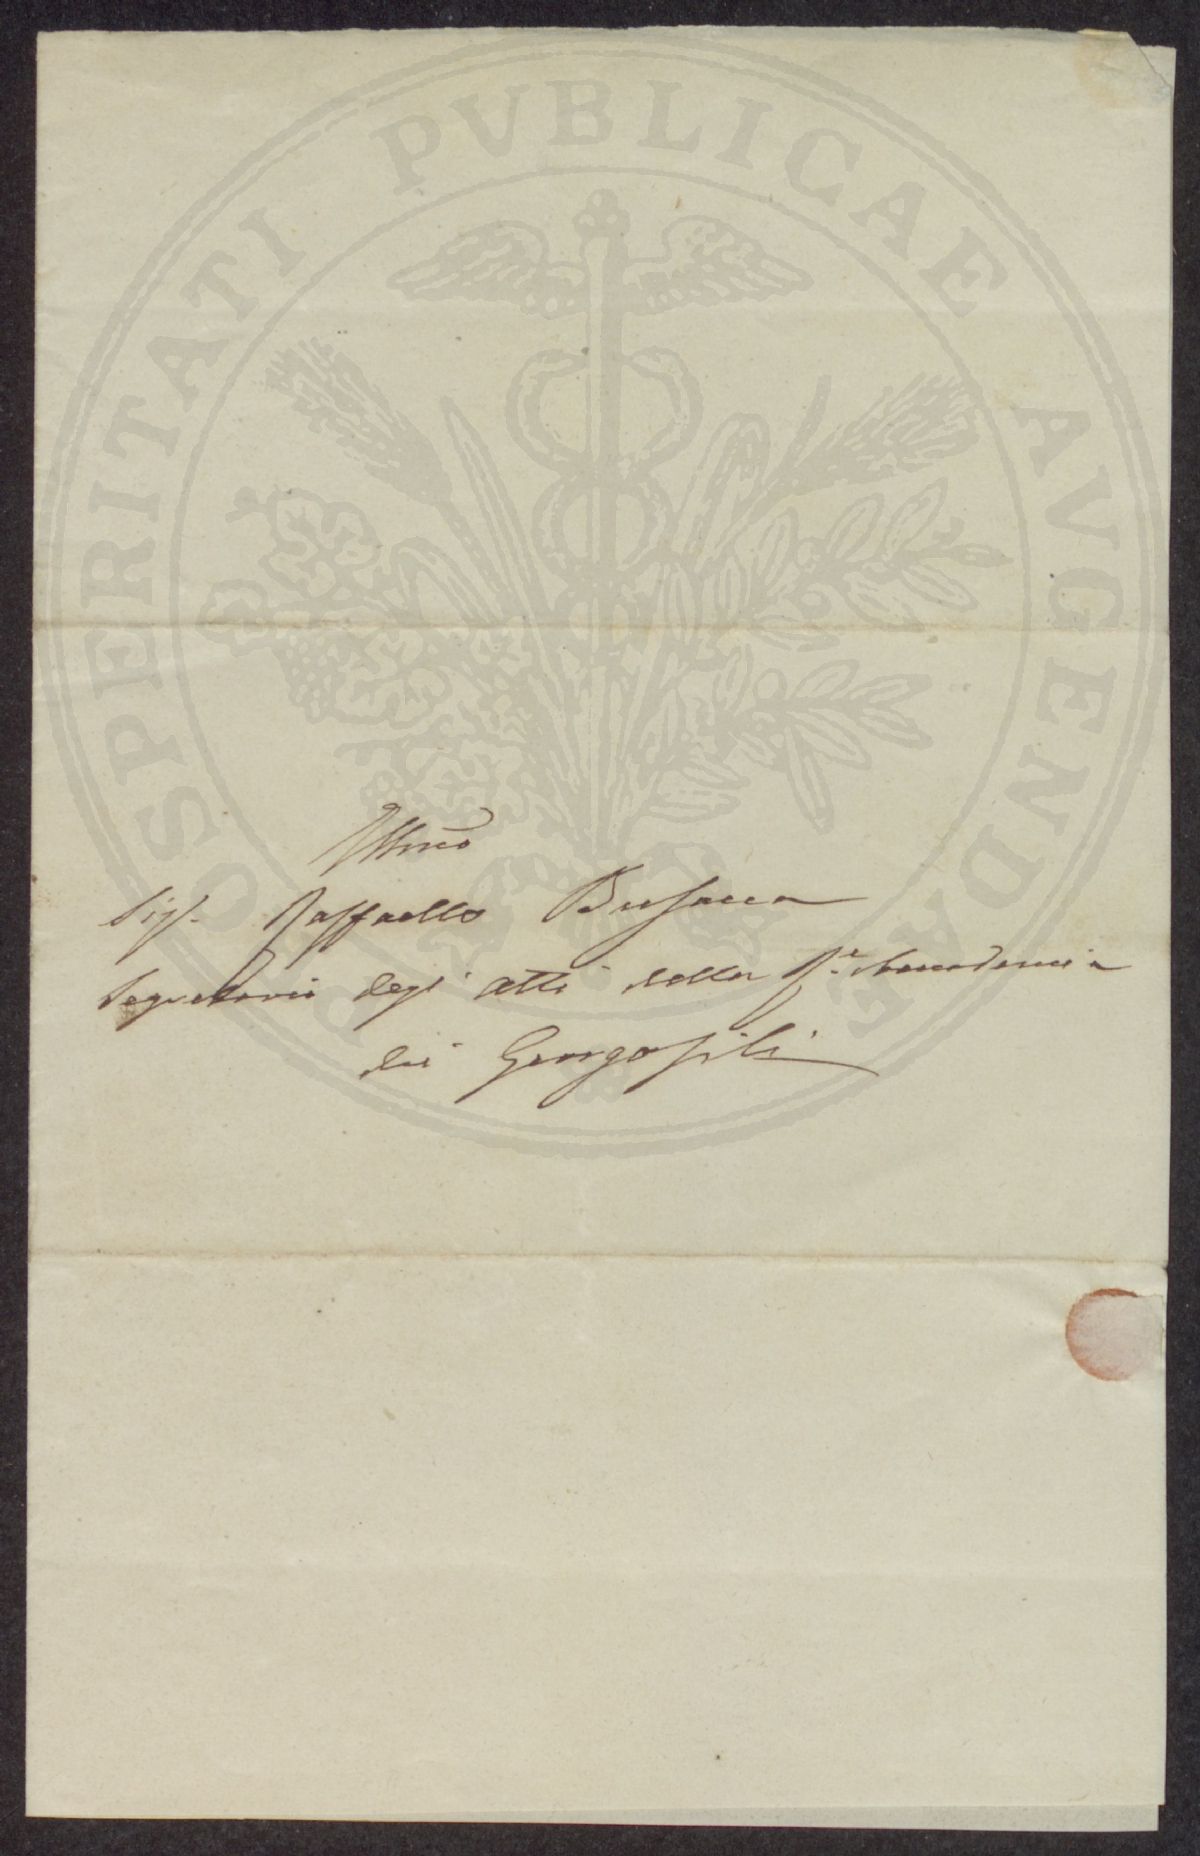 PROSPERITATI PVBLICAE AVGENDAE
Illmo
Sigr. Raffaello Busacca
Segretario degl' atti della Rle. Accademia
dei Georgofili